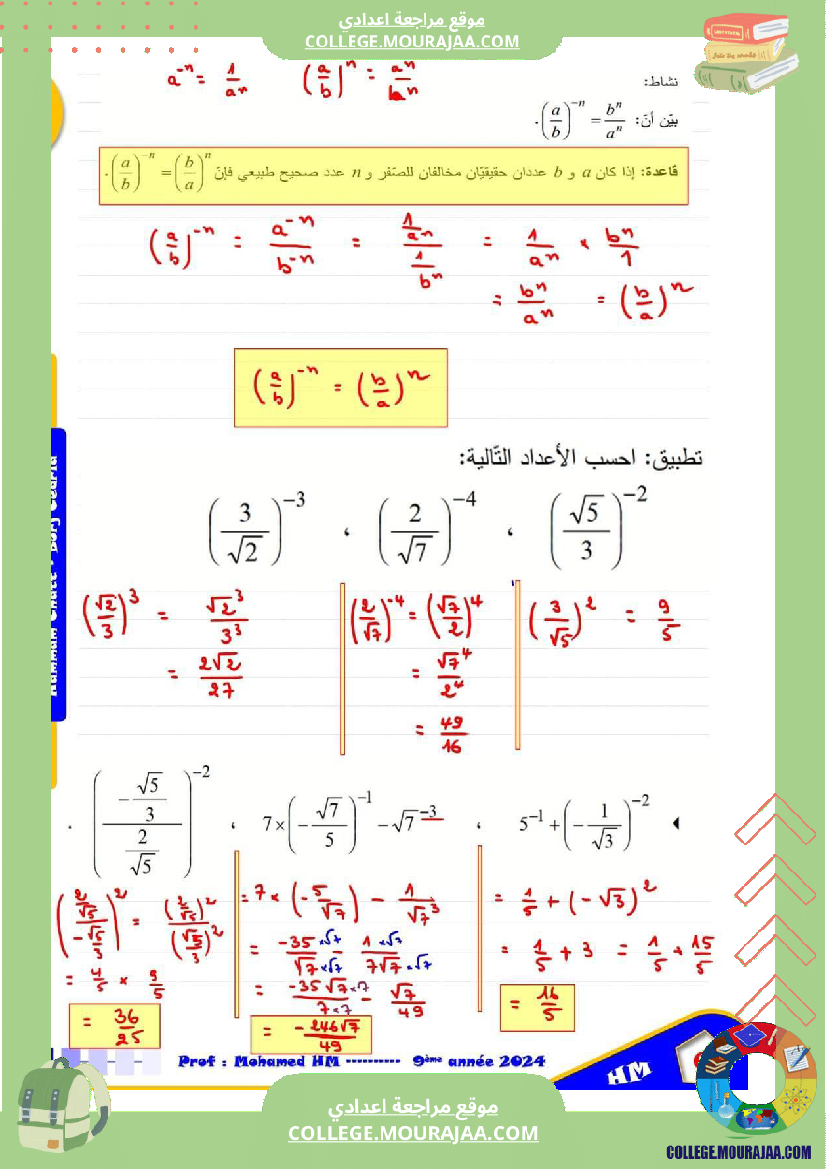 موقع مراجعة اعدادي
COLLEGE.MOURAJAA.COM
a⁻ⁿ = 1/aⁿ (a/b)ⁿ = aⁿ/bⁿ
نشاط:
بيّن أنّ: (a/b)⁻ⁿ = bⁿ/aⁿ .
قاعدة: إذا كان a و b عددان حقيقيّان مخالفان للصّفر و n عدد صحيح طبيعي فإنّ (a/b)⁻ⁿ = (b/a)ⁿ .
(a/b)⁻ⁿ = a⁻ⁿ/b⁻ⁿ = (1/aⁿ)/(1/bⁿ) = 1/aⁿ × bⁿ/1
= bⁿ/aⁿ = (b/a)ⁿ
(a/b)⁻ⁿ = (b/a)ⁿ
تطبيق: احسب الأعداد التّالية:
(√5/3)⁻² ، (2/√7)⁻⁴ ، (3/√2)⁻³
(√2/3)³ = √2³/3³
= 2√2/27
(2/√7)⁻⁴ = (√7/2)⁴
= √7⁴/2⁴
= 49/16
(3/√5)² = 9/5
◄ 5⁻¹ + (-1/√3)⁻² ، 7×(-√7/5)⁻¹ - √7⁻³ ، ((-√5/3)/(2/√5))⁻² .
((2/√5)/(-√5/3))² = (2/√5)²/(√5/3)²
= 4/5 × 9/5
= 36/25
= 7 × (-5/√7) - 1/√7³
= -35×√7/√7×√7 - 1×√7/7√7×√7
= -35√7×7/7×7 - √7/49
= -246√7/49
= 1/5 + (-√3)²
= 1/5 + 3 = 1/5 + 15/5
= 16/5
Prof : Mohamed HM ---------- 9ème année 2024
HM
موقع مراجعة اعدادي
COLLEGE.MOURAJAA.COM
COLLEGE.MOURAJAA.COM